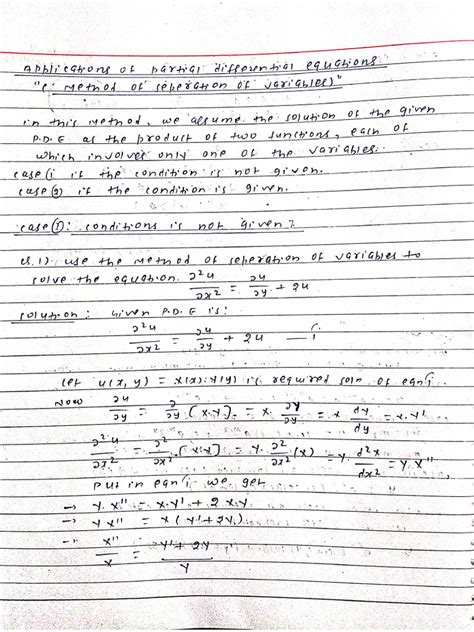 Applications of partial differential equations
"(: Method of seperation of variables)"
in this method, we assume the solution of the given
P.D.E as the product of two functions, each of
which involves only one of the variables.
case (i if the condition is not given.
case (2) if the condition is given.
case (1): conditions is not given:
Q.1) use the method of seperation of variables to
solve the equation. ∂²u/∂x² = ∂u/∂y + 2u
solution: Given P.D.E is:
∂²u/∂x² = ∂u/∂y + 2u — i
let u(x, y) = X(x).Y(y) is required soln of eqn i
Now ∂u/∂y = ∂/∂y (X.Y) = X ∂Y/∂y = X dY/dy = X.Y'
∂²u/∂x² = ∂²/∂x² [X.Y] = Y ∂²/∂x² (X) = Y. d²X/dx² = Y.X'',
put in eqn i we get
→ Y.X'' = X.Y' + 2X.Y
→ YX'' = X(Y' + 2Y)
→ X''/X = Y' + 2Y/Y